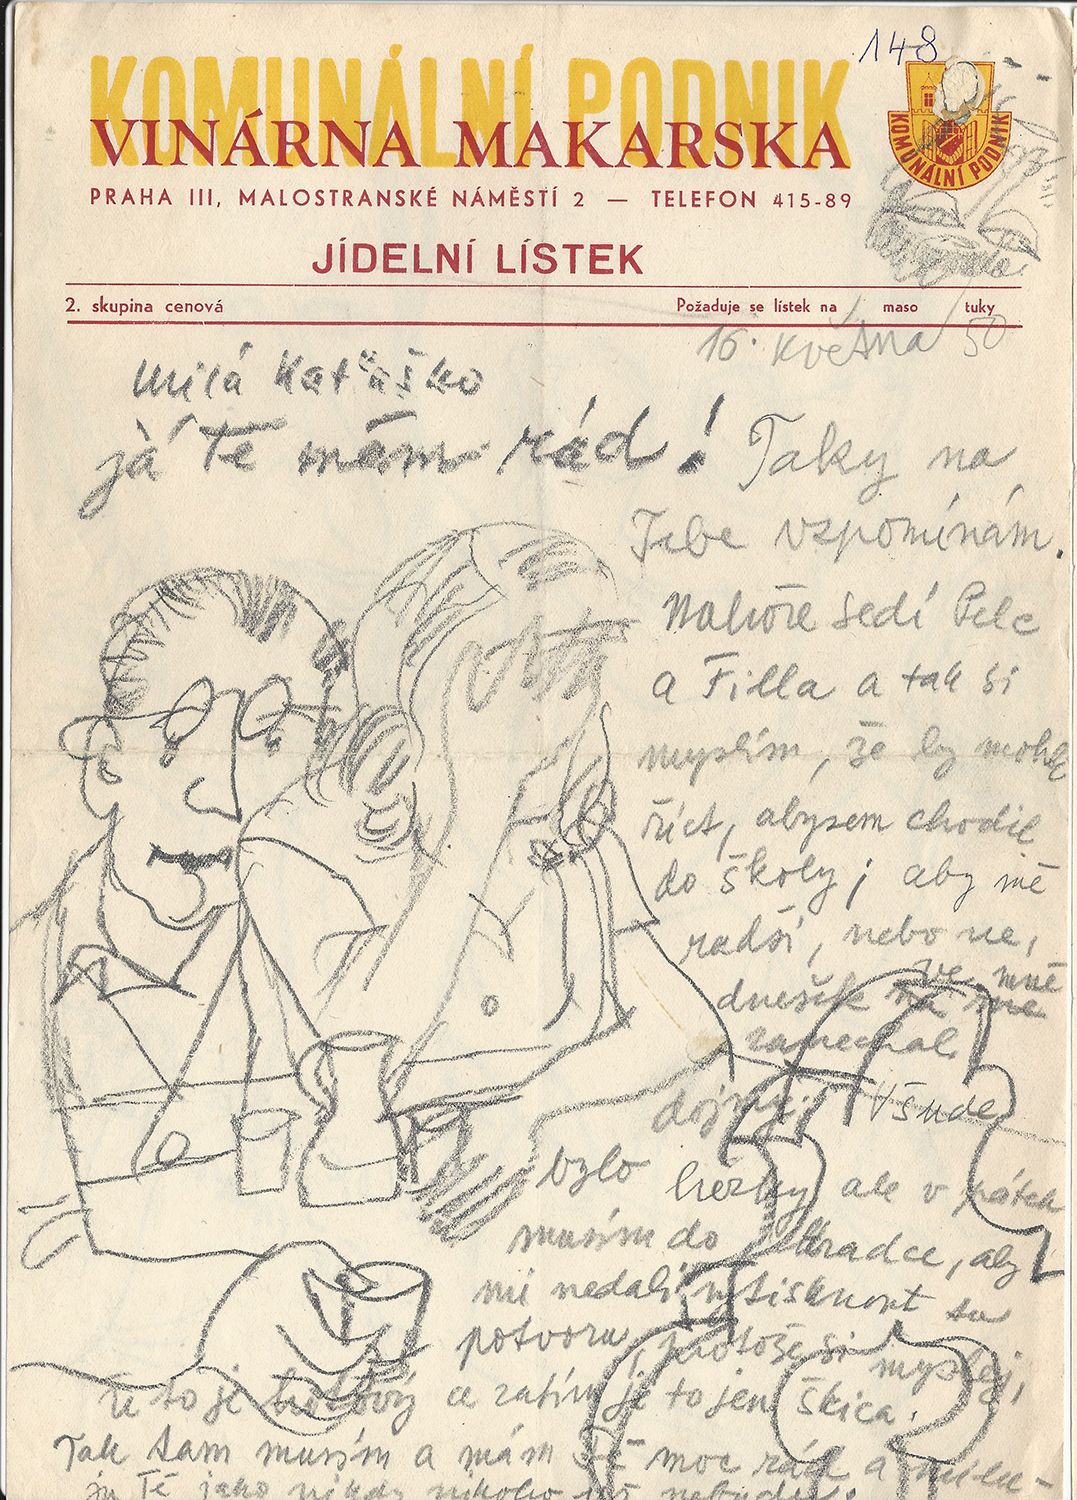 148
KOMUNÁLNÍ PODNIK
VINÁRNA MAKARSKA
KOMUNÁLNÍ PODNIK
PRAHA III, MALOSTRANSKÉ NÁMĚSTÍ 2 — TELEFON 415-89
JÍDELNÍ LÍSTEK
2. skupina cenová Požaduje se lístek na maso tuky
16. května 50
Milá Kaťuško
já Tě mám rád! Taky na
Tebe vzpomínám.
Nahoře sedí Pelc
a Filla a tak si
myslím, že by mohli
říct, abysem chodil
do školy; aby mě
radši, nebo ne,
dnešek ve mně
zanechal
dojmy. Všude
bylo hezky ale v pátek
musím do Hradce, aby
mi nedali vytisknout tu
potvoru, protože si myslej,
že to je hotový a zatím je to jen škica.
Tak tam musím a mám Tě moc rád a milu-
ju Tě jako nikdy nikoho